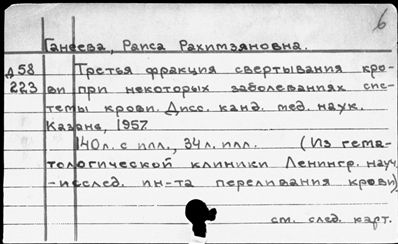 6
Ганеева, Раиса Рахимзяновна.
Д58 Третья фракция свертывания кро-
223 ви при некоторых заболеваниях сис-
темы крови. Дисс. канд. мед. наук.
Казань, 1957.
140 л. с илл., 34 л. илл. (Из гема-
тологической клиники Ленингр. науч.
-исслед. ин-та переливания крови).
см. след. карт.